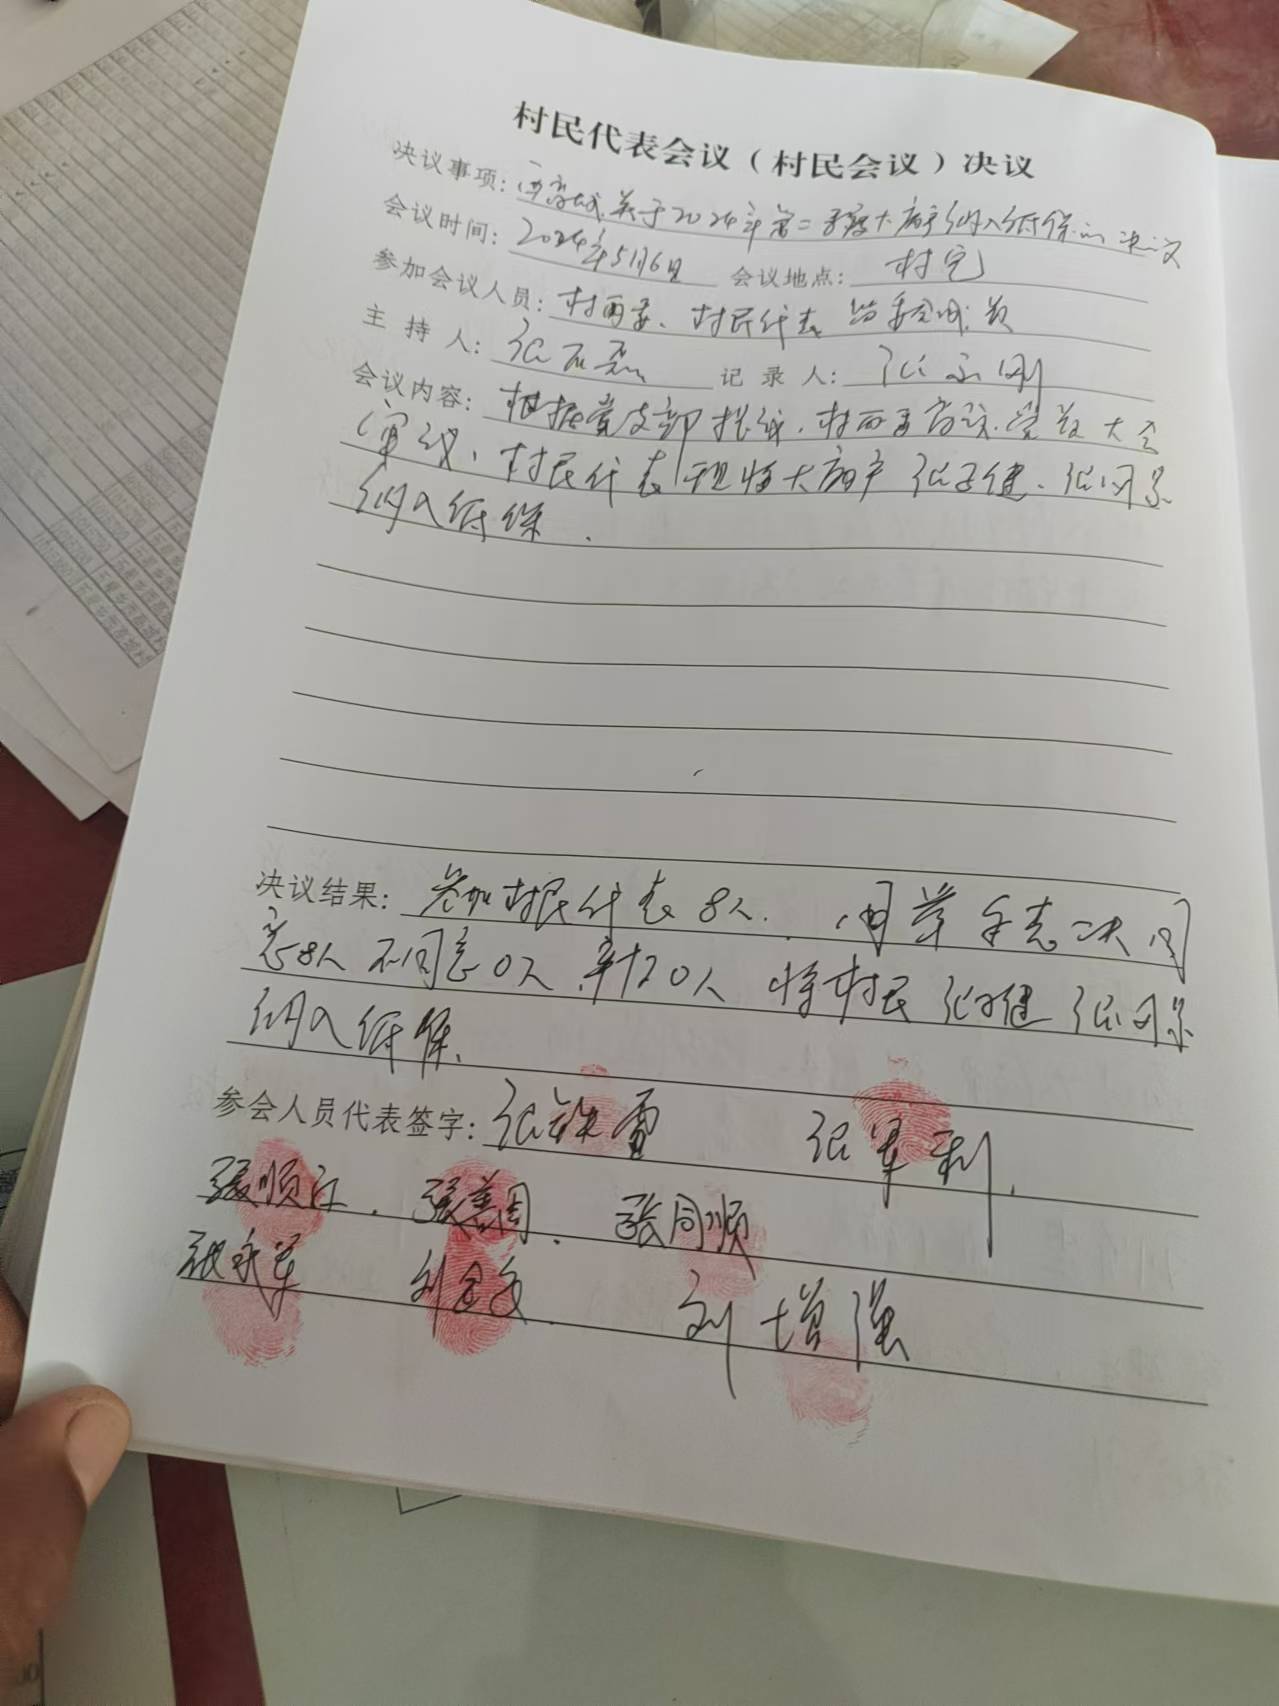 村民代表会议（村民会议）决议
决议事项：西高城关于2024年第二季度大病户纳入低保的决议
会议时间：2024年5月6日 会议地点：村室
参加会议人员：村两委、村民代表 监委会成员
主 持 人：张 记 录 人：张 刚
会议内容：根据党支部提议，村两委商议，党员大会
审议，村民代表 现将大病户 张子健、张同
纳入低保．
决议结果：参加村民代表8人． 用举手表决 同
意8人 不同意0人 弃权0人 将村民 张子健 张同
纳入低保．
参会人员代表签字：张铁雷 张军利
张顺江． 张善周． 张同顺
张永军 刘 刘增强